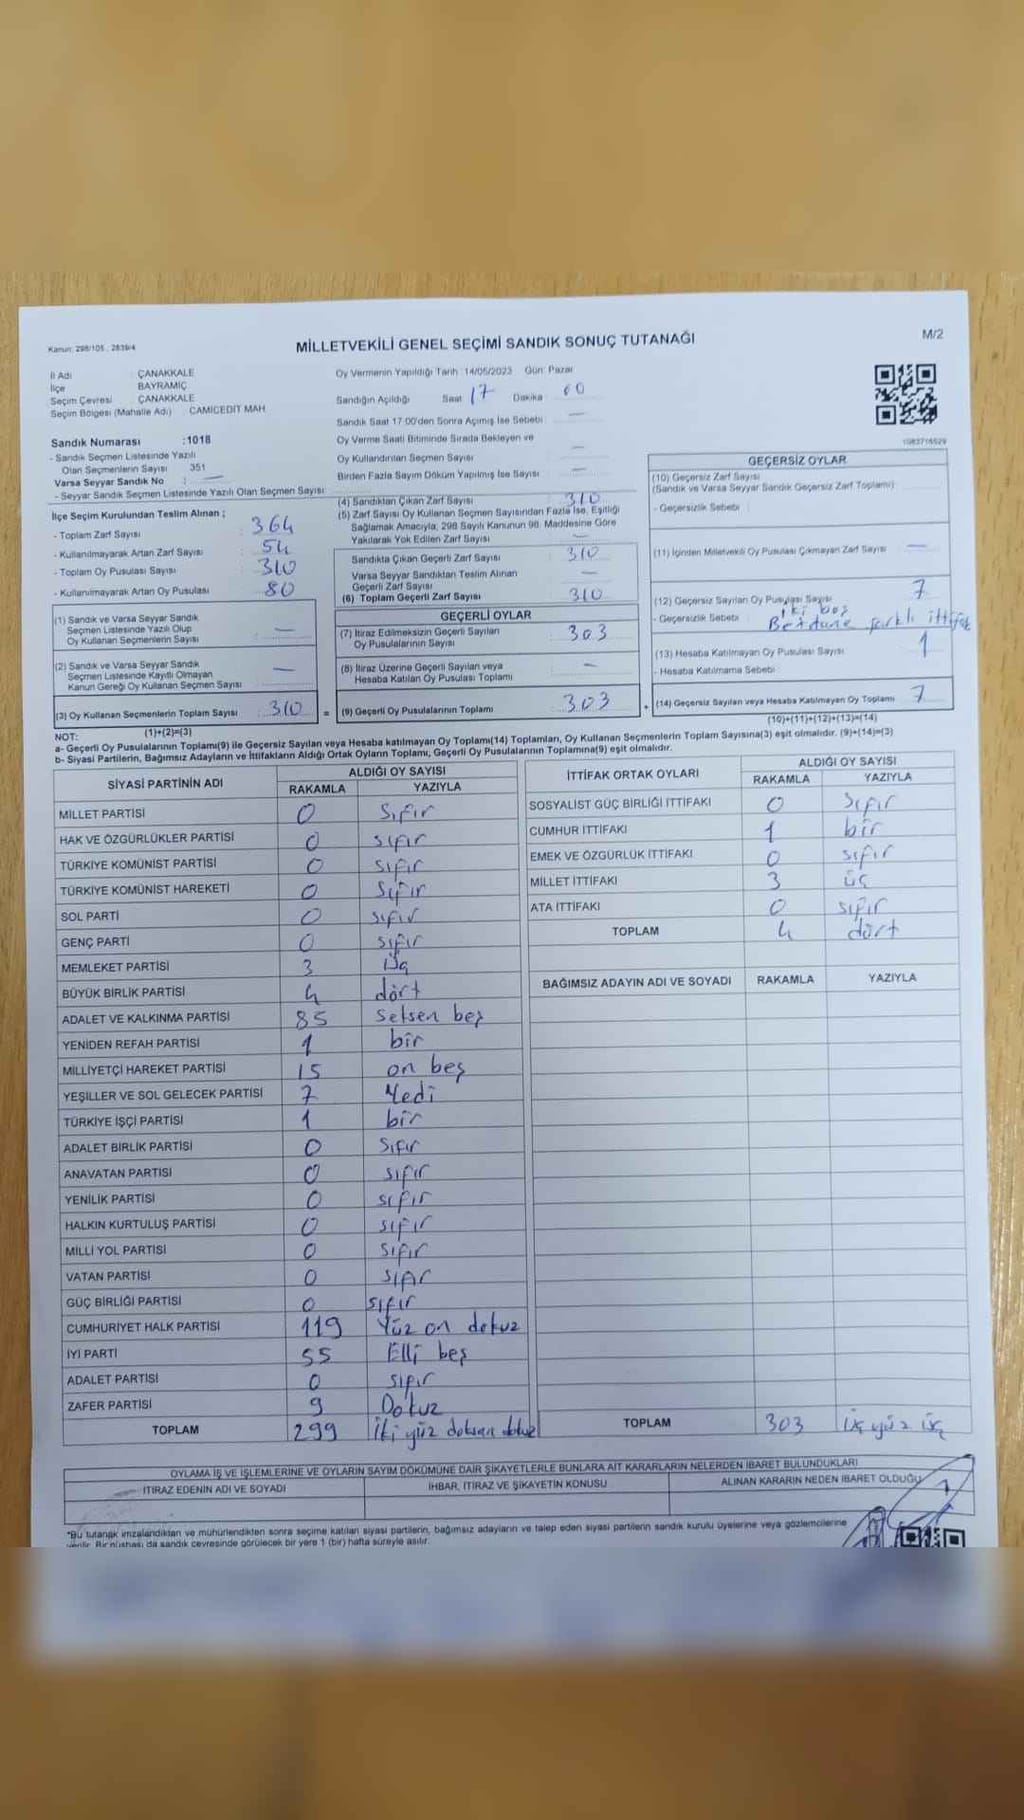 Kanun: 298/105, 2839/4
MİLLETVEKİLİ GENEL SEÇİMİ SANDIK SONUÇ TUTANAĞI
M/2
İl Adı : ÇANAKKALE
İlçe : BAYRAMİÇ
Seçim Çevresi : ÇANAKKALE
Seçim Bölgesi (Mahalle Adı) CAMİCEDİT MAH
Sandık Numarası :1018
- Sandık Seçmen Listesinde Yazılı
Olan Seçmenlerin Sayısı 351
Varsa Seyyar Sandık No : —
- Seyyar Sandık Seçmen Listesinde Yazılı Olan Seçmen Sayısı
İlçe Seçim Kurulundan Teslim Alınan ;
- Toplam Zarf Sayısı : 364
- Kullanılmayarak Artan Zarf Sayısı : 54
- Toplam Oy Pusulası Sayısı : 310
- Kullanılmayarak Artan Oy Pusulası : 80
(1) Sandık ve Varsa Seyyar Sandık
Seçmen Listesinde Yazılı Olup
Oy Kullanan Seçmenlerin Sayısı : —
(2) Sandık ve Varsa Seyyar Sandık
Seçmen Listesinde Kayıtlı Olmayan
Kanun Gereği Oy Kullanan Seçmen Sayısı : —
(3) Oy Kullanan Seçmenlerin Toplam Sayısı : 310
(1)+(2)=(3)
Oy Vermenin Yapıldığı Tarih :14/05/2023 Gün: Pazar
Sandığın Açıldığı Saat : 17 Dakika : 00
Sandık Saat 17.00'den Sonra Açılmış İse Sebebi : —
Oy Verme Saati Bitiminde Sırada Bekleyen ve
Oy Kullandırılan Seçmen Sayısı : —
Birden Fazla Sayım Döküm Yapılmış İse Sayısı : —
(4) Sandıktan Çıkan Zarf Sayısı : 310
(5) Zarf Sayısı Oy Kullanan Seçmen Sayısından Fazla İse, Eşitliği
Sağlamak Amacıyla, 298 Sayılı Kanunun 98. Maddesine Göre
Yakılarak Yok Edilen Zarf Sayısı : —
Sandıkta Çıkan Geçerli Zarf Sayısı : 310
Varsa Seyyar Sandıktan Teslim Alınan
Geçerli Zarf Sayısı : —
(6) Toplam Geçerli Zarf Sayısı : 310
GEÇERLİ OYLAR
(7) İtiraz Edilmeksizin Geçerli Sayılan
Oy Pusulalarının Sayısı : 303
(8) İtiraz Üzerine Geçerli Sayılan veya
Hesaba Katılan Oy Pusulası Toplamı : —
= (9) Geçerli Oy Pusulalarının Toplamı : 303
1083716529
GEÇERSİZ OYLAR
(10) Geçersiz Zarf Sayısı :
(Sandık ve Varsa Seyyar Sandık Geçersiz Zarf Toplamı)
- Geçersizlik Sebebi :
(11) İçinden Milletvekili Oy Pusulası Çıkmayan Zarf Sayısı : —
(12) Geçersiz Sayılan Oy Pusulası Sayısı : 7
iki boş
- Geçersizlik Sebebi : farklı ittifak
(13) Hesaba Katılmayan Oy Pusulası Sayısı : 1
- Hesaba Katılmama Sebebi :
+ (14) Geçersiz Sayılan veya Hesaba Katılmayan Oy Toplamı : 7
(10)+(11)+(12)+(13)=(14)
NOT:
a- Geçerli Oy Pusulalarının Toplamı(9) ile Geçersiz Sayılan veya Hesaba katılmayan Oy Toplamı(14) Toplamları, Oy Kullanan Seçmenlerin Toplam Sayısına(3) eşit olmalıdır. (9)+(14)=(3)
b- Siyasi Partilerin, Bağımsız Adayların ve İttifakların Aldığı Ortak Oyların Toplamı, Geçerli Oy Pusulalarının Toplamına(9) eşit olmalıdır.
SİYASİ PARTİNİN ADI ALDIĞI OY SAYISI
RAKAMLA YAZIYLA
MİLLET PARTİSİ 0 sıfır
HAK VE ÖZGÜRLÜKLER PARTİSİ 0 sıfır
TÜRKİYE KOMÜNİST PARTİSİ 0 sıfır
TÜRKİYE KOMÜNİST HAREKETİ 0 sıfır
SOL PARTİ 0 sıfır
GENÇ PARTİ 0 sıfır
MEMLEKET PARTİSİ 3 üç
BÜYÜK BİRLİK PARTİSİ 4 dört
ADALET VE KALKINMA PARTİSİ 85 seksen beş
YENİDEN REFAH PARTİSİ 1 bir
MİLLİYETÇİ HAREKET PARTİSİ 15 on beş
YEŞİLLER VE SOL GELECEK PARTİSİ 7 Yedi
TÜRKİYE İŞÇİ PARTİSİ 1 bir
ADALET BİRLİK PARTİSİ 0 sıfır
ANAVATAN PARTİSİ 0 sıfır
YENİLİK PARTİSİ 0 sıfır
HALKIN KURTULUŞ PARTİSİ 0 sıfır
MİLLİ YOL PARTİSİ 0 sıfır
VATAN PARTİSİ 0 sıfır
GÜÇ BİRLİĞİ PARTİSİ 0 sıfır
CUMHURİYET HALK PARTİSİ 119 Yüz on dokuz
İYİ PARTİ 55 Elli beş
ADALET PARTİSİ 0 sıfır
ZAFER PARTİSİ 9 Dokuz
TOPLAM 299 İki yüz doksan dokuz
İTTİFAK ORTAK OYLARI ALDIĞI OY SAYISI
RAKAMLA YAZIYLA
SOSYALİST GÜÇ BİRLİĞİ İTTİFAKI 0 sıfır
CUMHUR İTTİFAKI 1 bir
EMEK VE ÖZGÜRLÜK İTTİFAKI 0 sıfır
MİLLET İTTİFAKI 3 üç
ATA İTTİFAKI 0 sıfır
TOPLAM 4 dört
BAĞIMSIZ ADAYIN ADI VE SOYADI RAKAMLA YAZIYLA
TOPLAM 303 üç yüz üç
OYLAMA İŞ VE İŞLEMLERİNE VE OYLARIN SAYIM DÖKÜMÜNE DAİR ŞİKAYETLERLE BUNLARA AİT KARARLARIN NELERDEN İBARET BULUNDUKLARI
İTİRAZ EDENİN ADI VE SOYADI İHBAR, İTİRAZ VE ŞİKAYETİN KONUSU ALINAN KARARIN NEDEN İBARET OLDUĞU
*Bu tutanak imzalandıktan ve mühürlendikten sonra seçime katılan siyasi partilerin, bağımsız adayların ve talep eden siyasi partilerin sandık kurulu üyelerine veya gözlemcilerine
verilir. Bir nüshası da sandık çevresinde görülecek bir yere 1 (bir) hafta süreyle asılır.